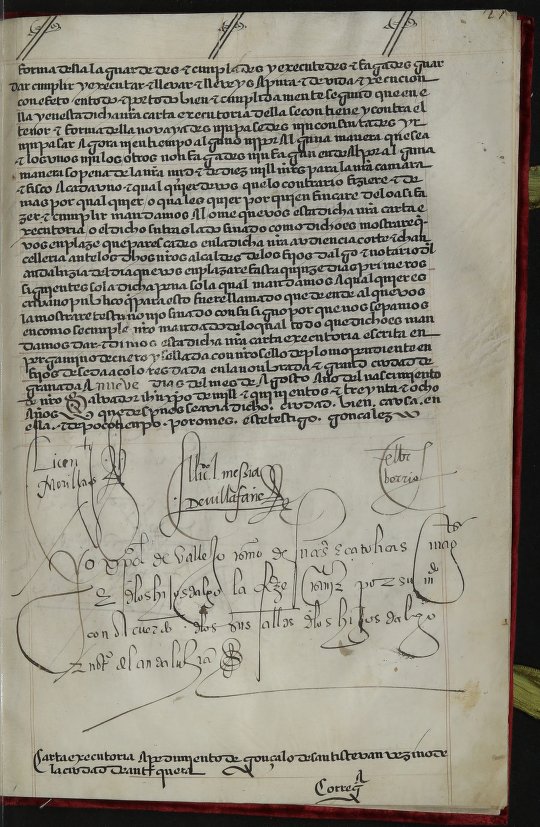 forma della la guardedes & cumplades y executedes & fagades guar
dar cumplir y executar & llevar & lleveys a pura & devida execucion
con efeto en todo & por todo bien & cumplidamente segund que en e
lla y en esta dicha nra carta executoria della se contiene y contra el
tenor & forma della no vayades ni pasedes ni consintades yr
ni pasar agora ni en tienpo alguno ni por alguna manera que sea
& los unos ni los otros non fagades ni fagan ende al por alguna
manera so pena de la nra md & de diez mill mrs para la nra camara
& fisco a cada uno & qual quier de vos que lo contrario fiziere & de
mas por qual quier o quales quier por quien fincare de lo asi fa
zer & cumplir mandamos al ome que vos esta dicha nra carta e
xecutoria o el dicho su traslado sinado como dicho es mostrare q
vos enplaze que parescades en la dicha nra audiencia corte & chan
celleria ante los dhos nros alcaldes de los fijos dalgo & notario dl
andaluzia del dia que vos enplazare fasta quinze dias primeros
siguientes so la dicha pena so la qual mandamos a qual quier es
crivano publico q para esto fuere llamado que de ende al que vos
la mostrare testimonio sinado con su signo por que nos sepamos
en como se cunple nro mandado de lo qual todo que dicho es man
damos dar & dimos esta dicha nra carta executoria escrita en
pergamino de cuero y sellada con nro sello de plomo pendiente en
filos de seda a colores dada en la nonbrada & grand ciudad de
granada a nueve dias del mes de agosto año del nascimiento
de nro salvador ihu xpo de mill & quinientos & treynta & ocho
años
ella. & de poco tienpo. por omes. este testigo. gonçalez
Licent
Morillas
El lic. mexia
de villafañe
Yo de vallejo scrivano de sus & catolicas mags
& dlos hijosdalgo la fize escrivir por su mdo
con acuerdo dlos sus alldes dlos hijosdalgo
& notº del andaluzia
Carta executoria a pedimiento de gonçalo de santistevan vezino de
la ciudad de antequera
Correg